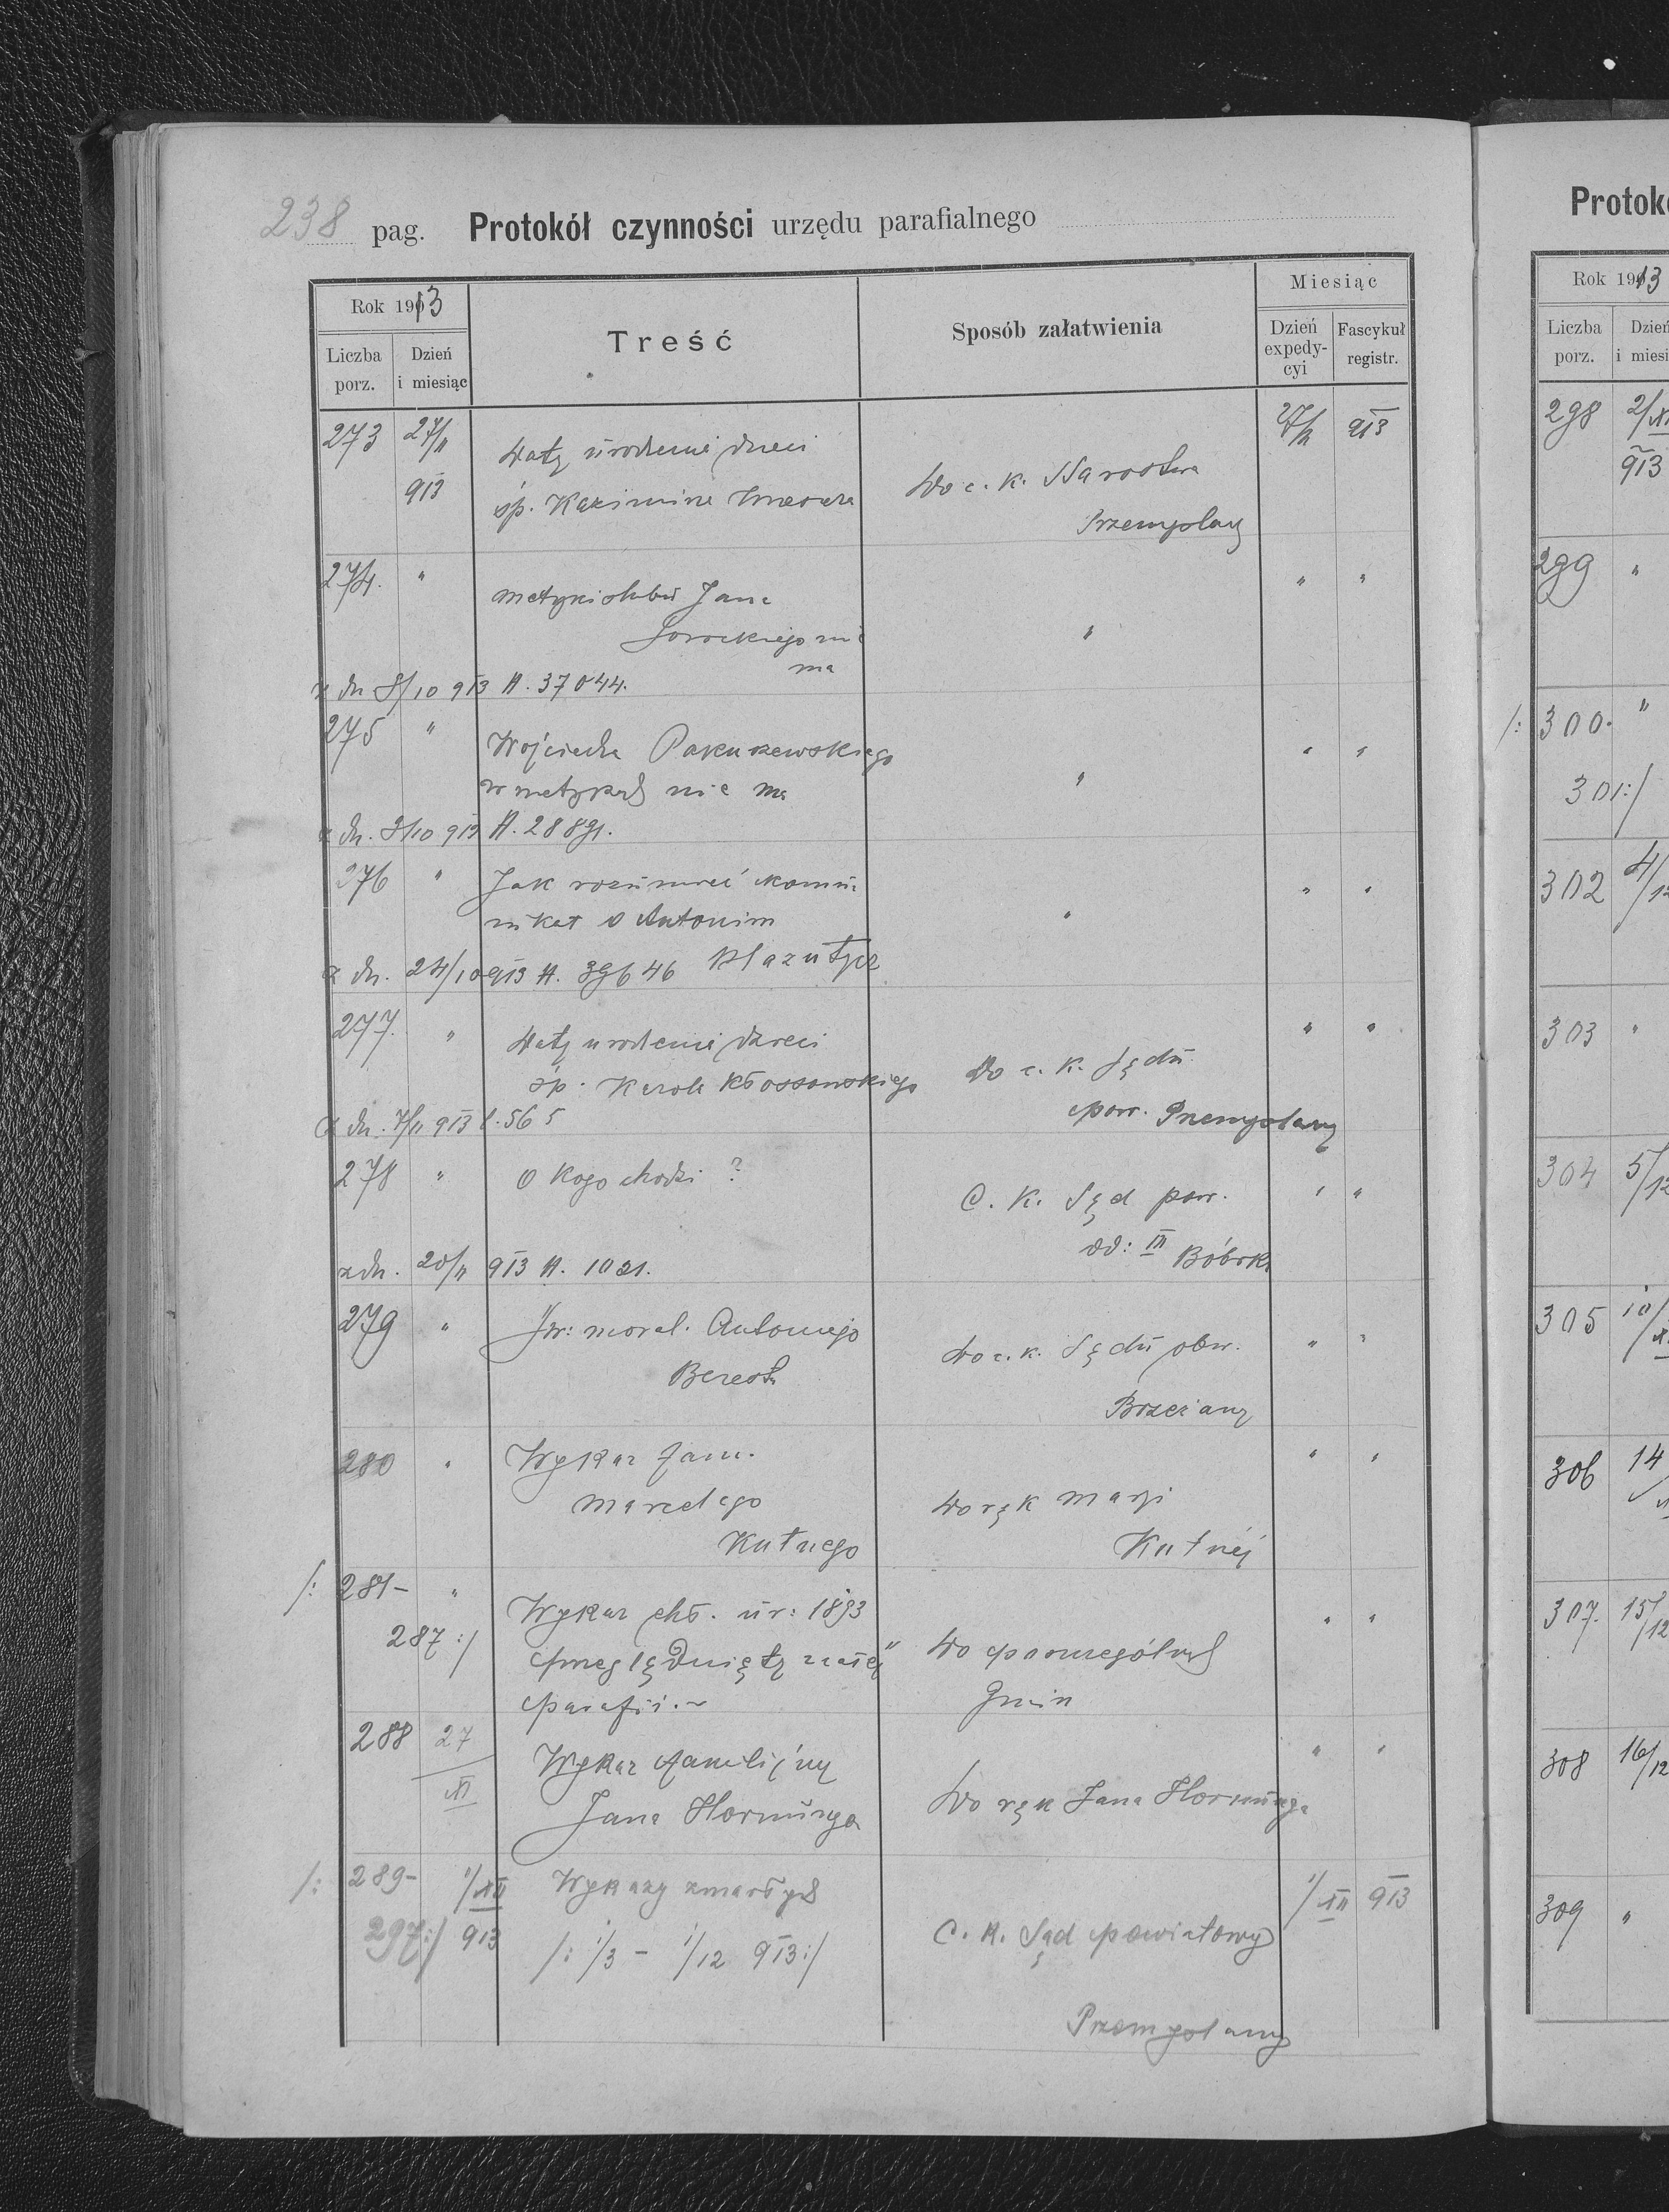 238 pag. Protokół czynności urzędu parafialnego
Rok 1913
Liczba porz.
Dzień i miesiąc
Treść
Sposób załatwienia
Miesiąc
Dzień expedycyi
Fascykuł registr.
273 27/11 913
Daty urodzenia dzieci
śp. Kazimirza
Do c. k. Starostwa
Przemyślany
913
274. "
metryki ślubu Jana
nie
ma
" " "
z dn 8/10 913 H. 37044.
275 "
Wojciecha
w metrykach nie ma
" " "
z dn. 3/10 913 H. 28891.
276 "
Jak rozumieć komu-
nikat o Antonim
" " "
z dn. 24/10 913 H. 39646
277. "
Daty urodzenia dzieci
śp. Karola Kłossowskiego
Do c. k. Sądu
pow. Przemyślany
" "
z dn. 7/11 913 l. 565
278 "
O kogo chodzi ?
C. K. Sąd pow.
od: III Bóbrka
" "
z dn. 20/11 913 H. 1021.
279 "
Św: moral. Antoniego
Do c. k. Sądu obw.
Brzeżany
" "
280 "
Wykaz fam.
Marcelego
Kutnego
Do rąk Maryi
Kutnéj
" "
/: 281- "
287 :/
Wykaz chł. ur: 1893
parafii. ~
Do poszczególnych
Gmin
" "
288 27/XI
Wykaz familijny
Jana Hornunga
Do rąk Jana Hornunga
" "
/: 289- 1/XII
297:/ 913
Wykazy zmarłych
/: 1/3 - 1/12 913:/
C. K. Sąd powiatowy
Przemyślany
1/XII 913
Protok
Rok 1913
Liczba porz.
Dzień
i miesi
298 2/XI
913
299 "
/: 300. "
301:/
302 4/12
303 "
304 5/12
305 10/
306 14
307. 15/12
308 16/12
309 "